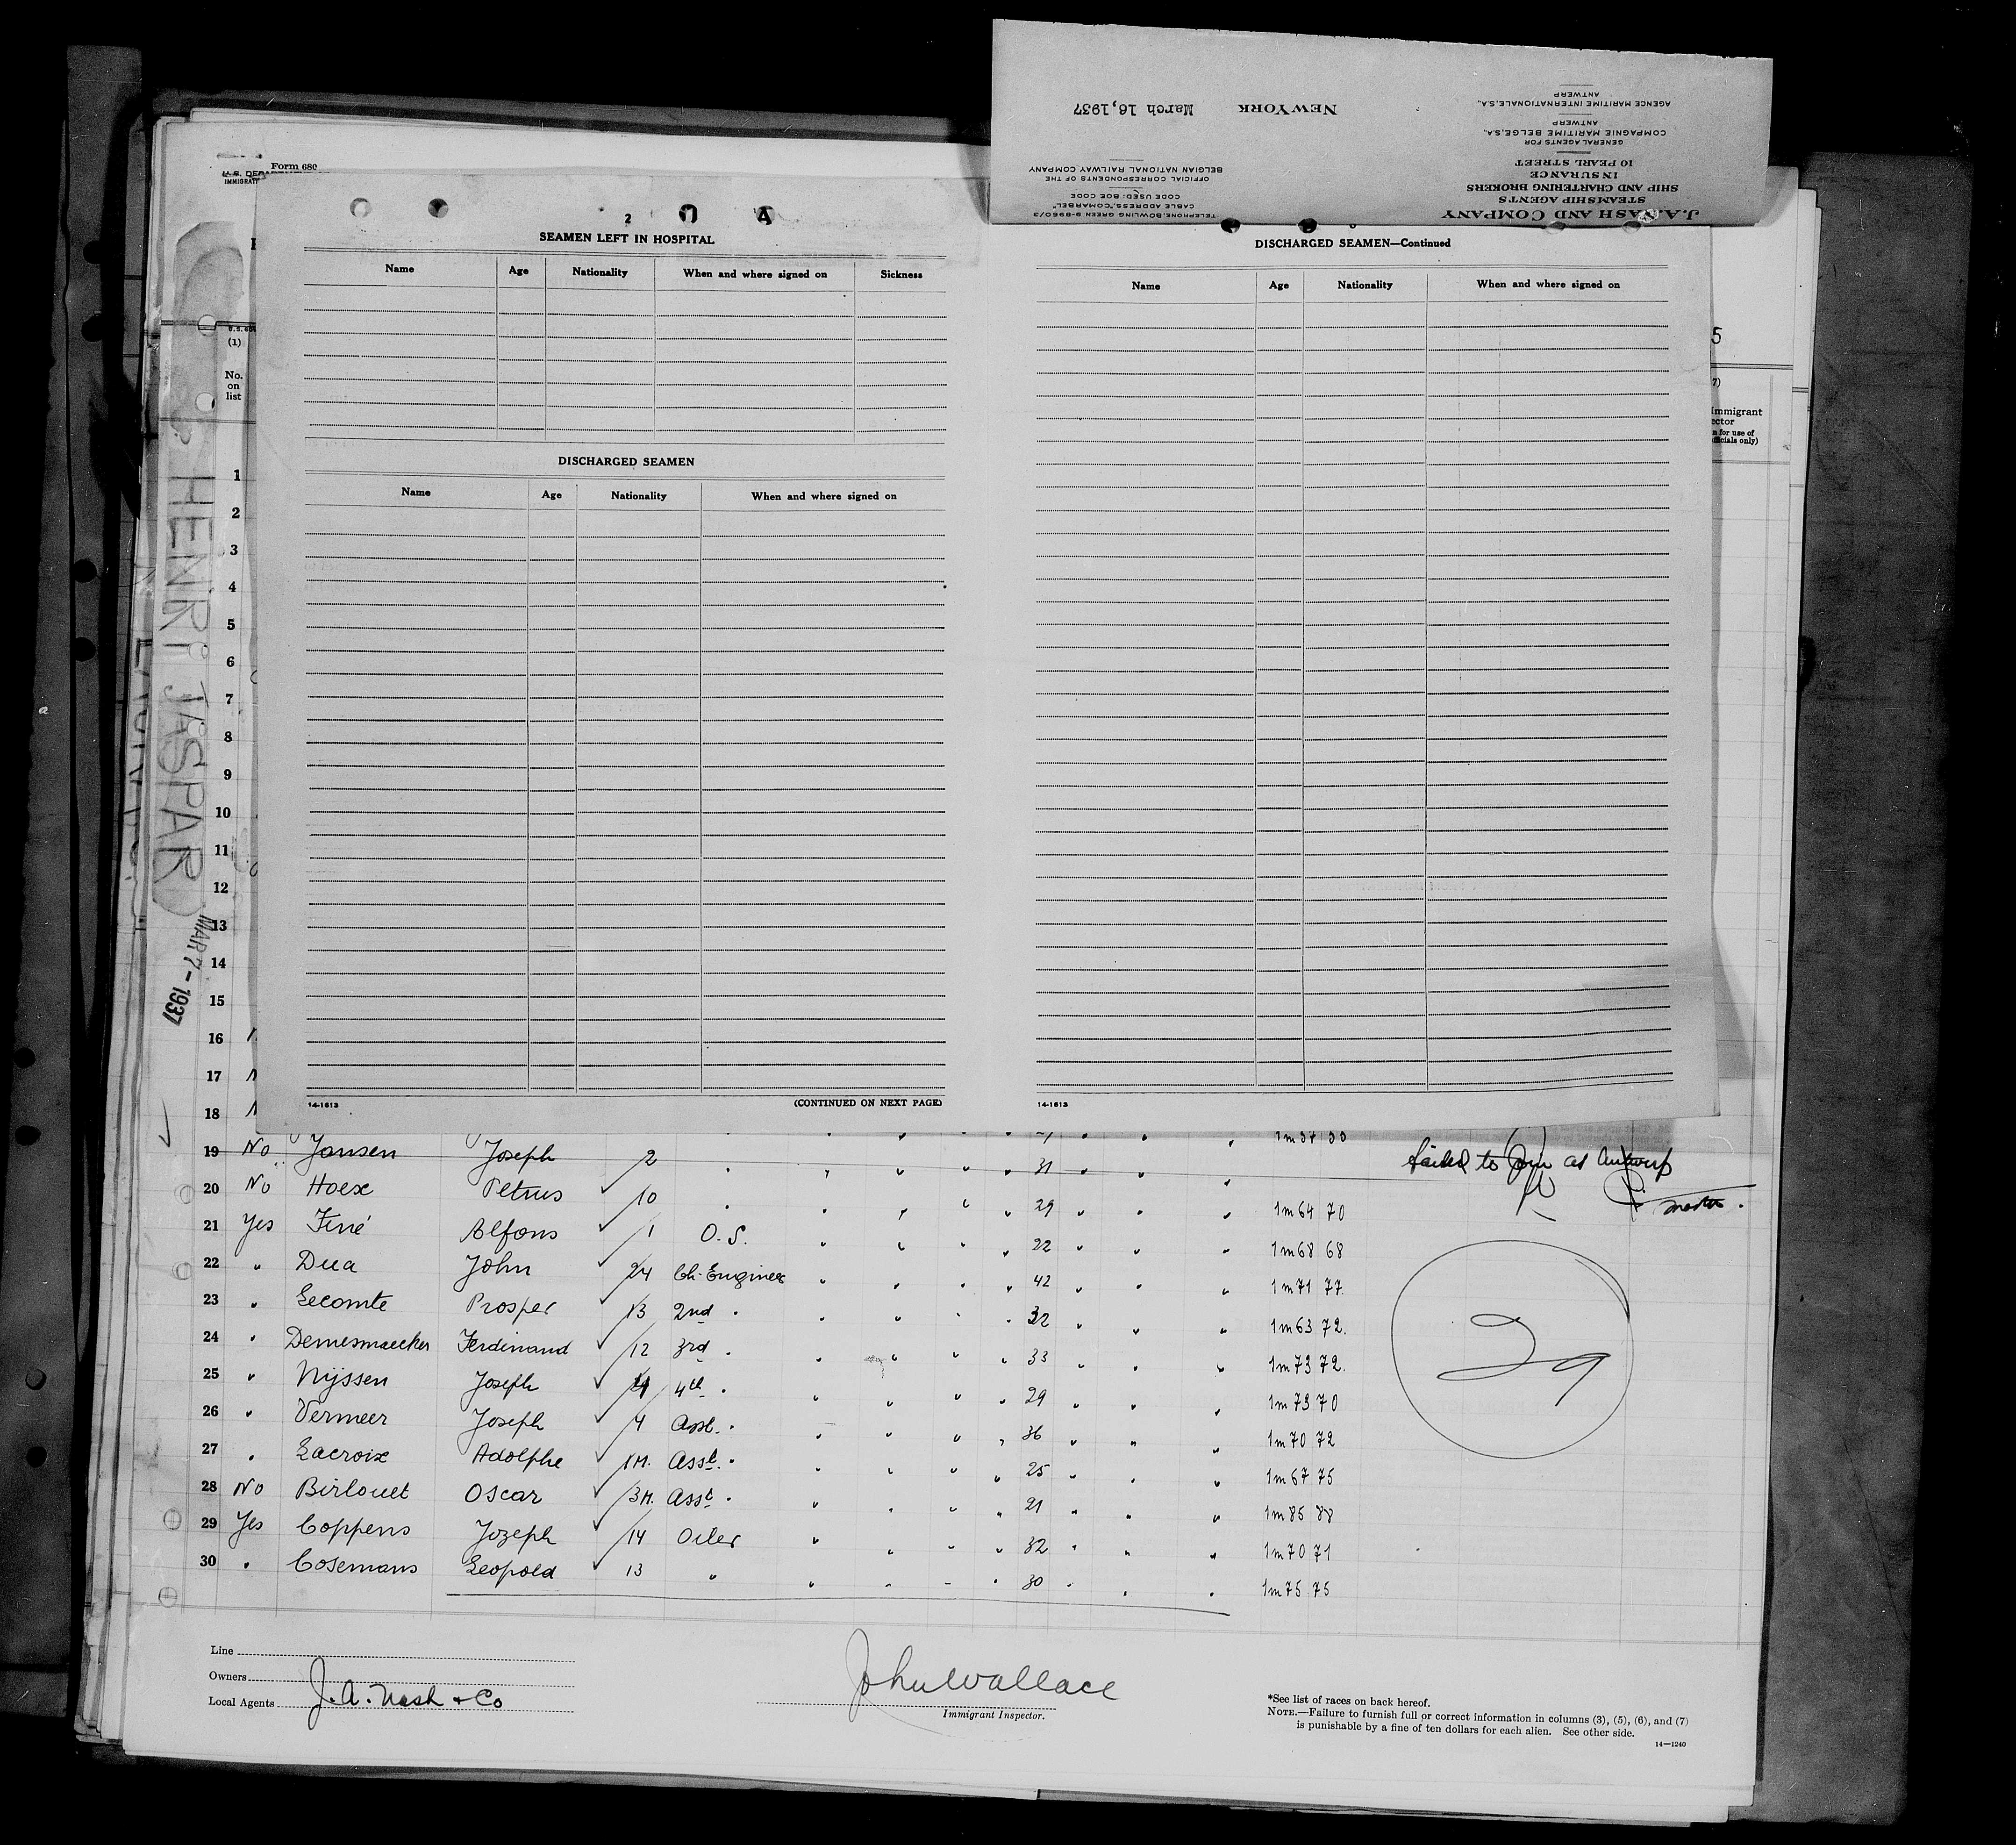 J.A. NASH AND COMPANY
STEAMSHIP AGENTS
SHIP AND CHARTERING BROKERS
INSURANCE
10 PEARL STREET
GENERAL AGENTS FOR
COMPAGNIE MARITIME BELGE, S.A.
ANTWERP
AGENCE MARITIME INTERNATIONALE, S.A.
ANTWERP
TELEPHONE, BOWLING GREEN 9-8960/3
CABLE ADDRESS, "COMARBEL"
CODE USED: BOE CODE
OFFICIAL CORRESPONDENTS OF THE
BELGIAN NATIONAL RAILWAY COMPANY
NEW YORK March 16, 1937
Form 680
U.S.
IMMIGRAT
2 A
SEAMEN LEFT IN HOSPITAL
Name Age Nationality When and where signed on Sickness
DISCHARGED SEAMEN
Name Age Nationality When and where signed on
14-1613 (CONTINUED ON NEXT PAGE)
DISCHARGED SEAMEN—Continued
Name Age Nationality When and where signed on
14-1613
5
Immigrant
ector
n for use of
fficials only)
HENRI JASPAR
MAR 7-1937
(1)
No.
on
list
1
2
3
4
5
6
7
8
9
10
11
12
13
14
15
16
17
18
19 No Jansen Joseph 2 " " " " 31 " " " failed to Join at Antwerp
20 No Hoex Petrus 10 " " " " 29 " " " 1m64 70 master.
21 Yes Finé Alfons 1 O.S. " " " " 22 " " " 1m68 68
22 " Dua John 24 Ch. Engineer " " " " 42 " " " 1m71 77
23 " Lecomte Prosper 13 2nd " " " " " 32 " " " 1m63 72.
24 " Demesmaecker Ferdinand 12 3rd " " " " " 33 " " " 1m73 72.
25 " Nijssen Joseph 4th " " " " " 29 " " " 1m73 70
26 " Vermeer Joseph 4 Asst. " " " " " 36 " " " 1m70 72
27 " Lacroix Adolphe 1M. Asst. " " " " " 25 " " " 1m67 75
28 No Birlouet Oscar 3M. Asst " " " " " 21 " " " 1m85 88
29 Yes Coppens Jozeph 14 Oiler " " " " 32 " " " 1m70 71
30 " Cosemans Leopold 13 " " " " " 30 " " " 1m75 75
29
Line
Owners
Local Agents J. A. Nash & Co
John Wallace
Immigrant Inspector.
*See list of races on back hereof.
NOTE.—Failure to furnish full or correct information in columns (3), (5), (6), and (7)
is punishable by a fine of ten dollars for each alien. See other side.
14—1240